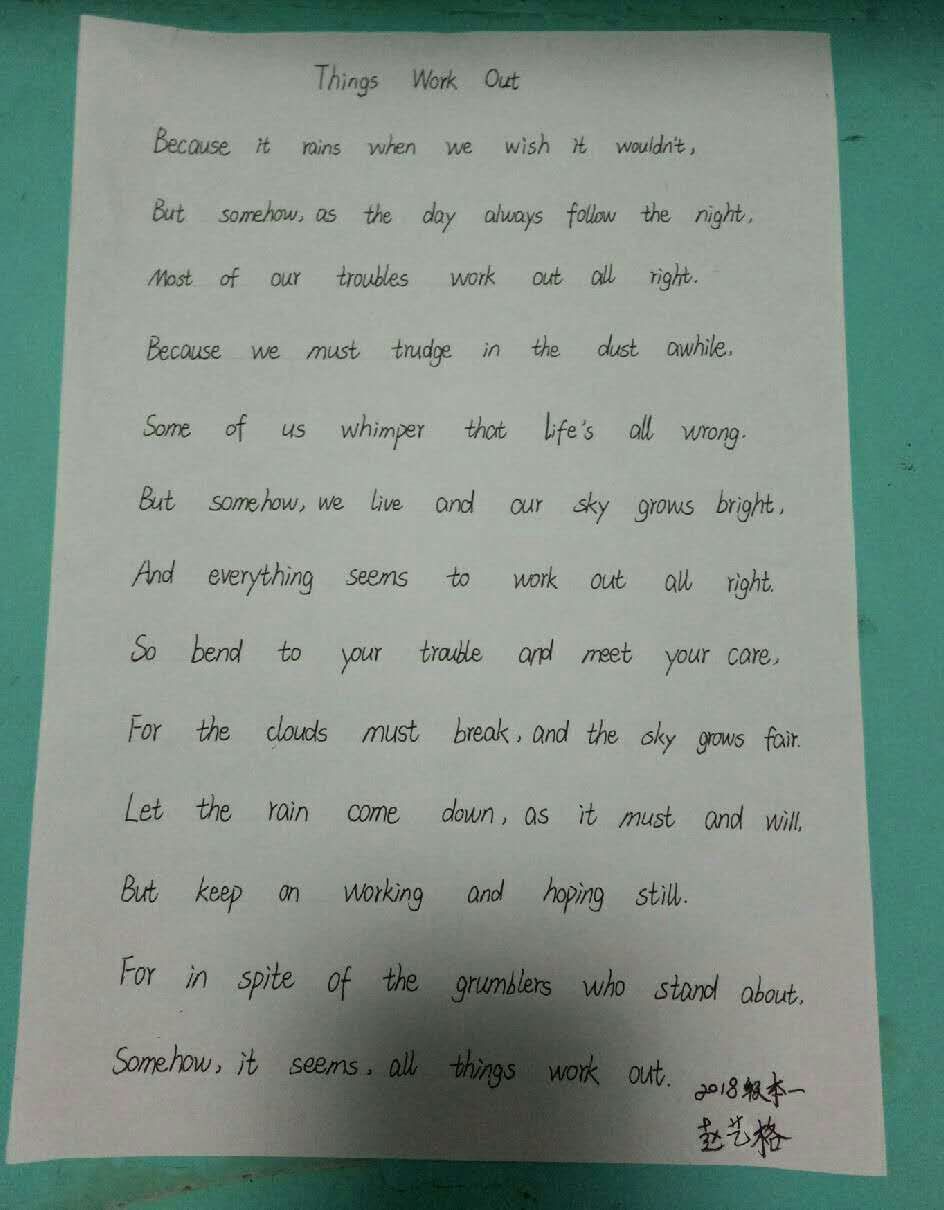 Things Work Out
Because it rains when we wish it wouldn't,
But somehow, as the day always follow the night,
Most of our troubles work out all right.
Because we must trudge in the dust awhile,
Some of us whimper that life's all wrong.
But somehow, we live and our sky grows bright,
And everything seems to work out all right.
So bend to your trouble and meet your care,
For the clouds must break, and the sky grows fair.
Let the rain come down, as it must and will,
But keep on working and hoping still.
For in spite of the grumblers who stand about,
Somehow, it seems, all things work out.
2018级本一
赵艺格